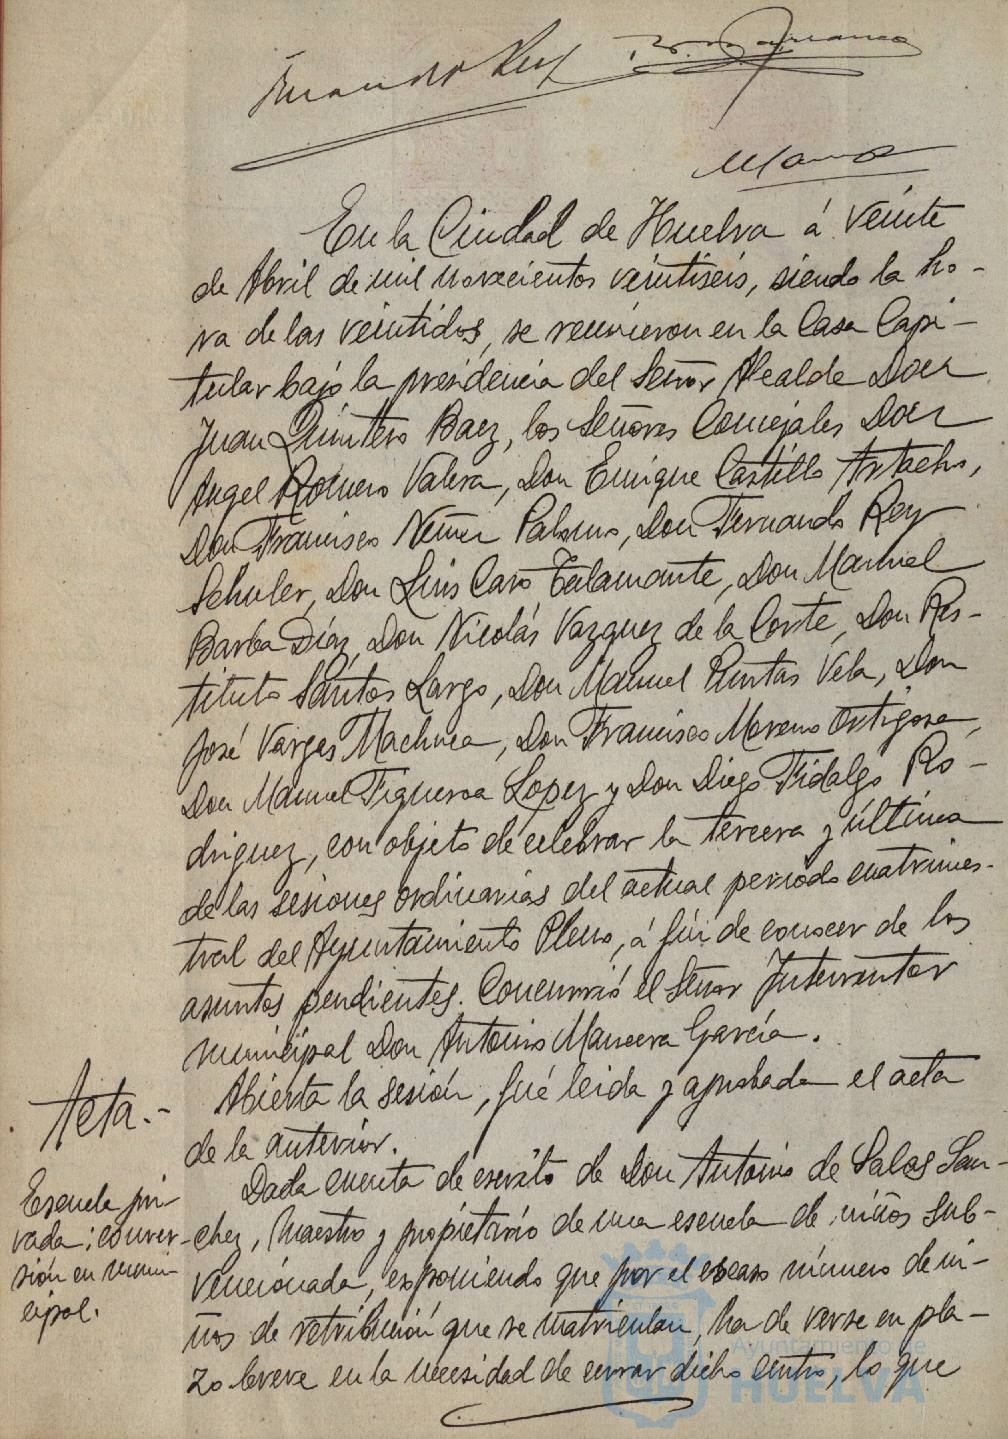 Fernando Rey
En la Ciudad de Huelva á veinte
de Abril de mil novecientos veintiseis, siendo la ho-
ra de las veintidos, se reunieron en la Casa Capi-
tular bajo la presidencia del Señor Alcalde Don
Juan Quintero Baez, los Señores Concejales Don
Angel Romero Valera, Don Enrique Castillo Artacho,
Don Francisco Núñez Palomo, Don Fernando Rey
Schuler, Don Luis Caro Talamante, Don Manuel
Barba Díaz, Don Nicolás Vazquez de la Corte, Don Res-
tituto Santos Largo, Don Manuel Puntas Vela, Don
José Vargas Machuca, Don Francisco Moreno Ortigosa,
Don Manuel Figueroa Lopez y Don Diego Fidalgo Ro-
driguez, con objeto de celebrar la tercera y última
de las sesiones ordinarias del actual periodo cuatrimes-
tral del Ayuntamiento Pleno, á fin de conocer de los
asuntos pendientes. Concurrió el Señor Interventor
municipal Don Antonio Mancera García.
Acta.-
Abierta la sesión, fué leida y aprobada el acta
de la anterior.
Escuela pri-
vada; conver-
sión en muni-
cipal.
Dada cuenta de escrito de Don Antonio de Salas San-
chez, Maestro y propietario de una escuela de niños sub-
vencionada, exponiendo que por el escaso número de ni-
ños de retribución que se matriculan, ha de verse en pla-
zo breve en la necesidad de cerrar dicho centro, lo que
Ayuntamiento de
HUELVA